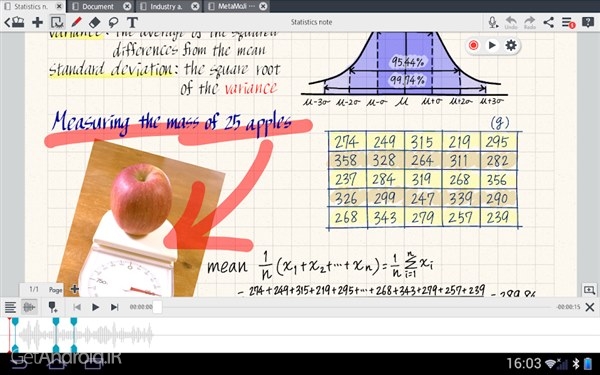 Statistics n.
Document
Industry a.
Statistics note
variance: the average of the squared
differences from the mean
standard deviation: the square root
of the variance
95.44%
99.74%
μ-3σ μ-2σ μ-σ μ μ+σ μ+2σ μ+3σ
Measuring the mass of 25 apples
(g)
274 249 315 219 295
358 328 264 311 282
237 284 319 268 356
326 299 247 339 290
268 343 279 257 239
mean 1/n (x₁+x₂+⋯+xₙ) = 1/n Σⁿᵢ₌₁ xᵢ
= 274+249+315+219+295+⋯+268+343+279+257+239 = 289.86
1/1 Page
00:00:00
-00:00:15
GetAndroid.IR
16:03